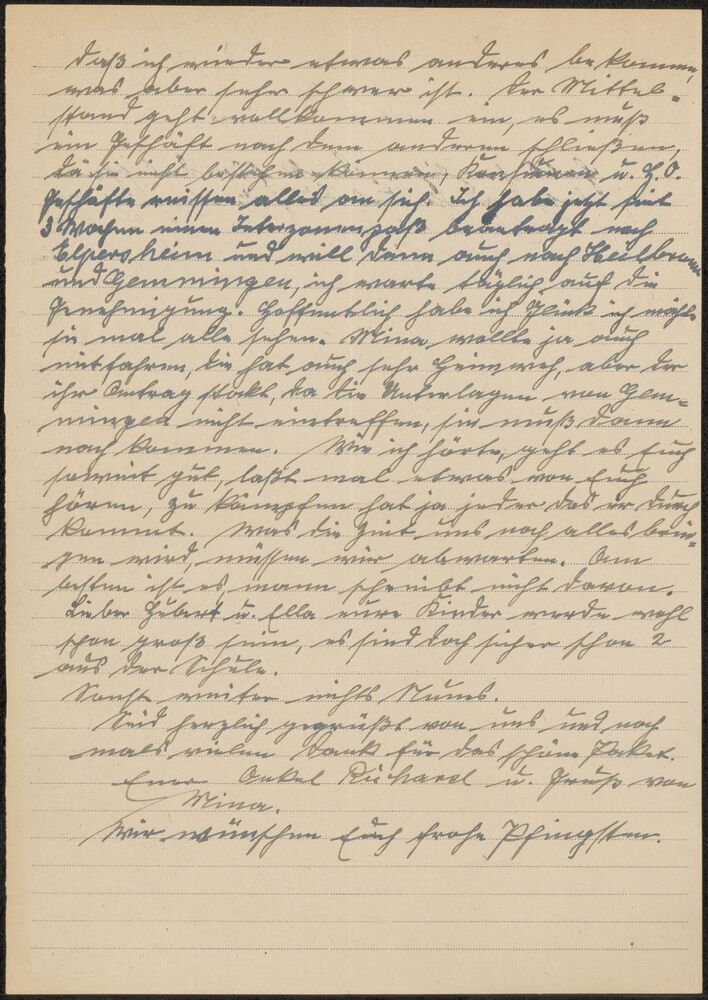 daß ich wieder etwas anderes bekomme,
was aber sehr schwer ist. Der Mittel-
stand geht vollkommen ein, es muß
ein Geschäft nach dem anderen schließen,
da sie nicht bestehen können, Konsumen u. H.O.
Geschäfte reissen alles an sich. Ich habe jetzt seit
3 Wochen einen Interzonenpaß beantragt nach
Elpersheim und will dann auch nach Heilbronn
und Gemmingen, ich warte täglich auf die
Genehmigung. Hoffentlich habe ich Glück ich möchte
sie mal alle sehen. Mina wollte ja auch
mitfahren, die hat auch sehr Heimweh, aber der
ihr Antrag stokt, da die Unterlagen von Gem-
mingen nicht eintreffen, sie muß dann
nach kommen. Wie ich hörte, geht es Euch
soweit gut, laßt mal etwas von Euch
hören, zu kämpfen hat ja jeder das er durch
kommt. Was die Zeit uns noch alles brin-
gen wird, müssen wir abwarten. Am
besten ist es, mann schreibt nicht davon.
Lieber Hubert u. Ella eure Kinder werde wohl
schon groß sein, es sind doch sicher schon 2
aus der Schule.
Sonst weiter nichts Neues.
Seid herzlich gegrüßt von uns und noch
mals vielen Dank für das schöne Paket.
Euer Onkel Richard u. Gruß von
Mina.
Wir wünschen Euch frohe Pfingsten.